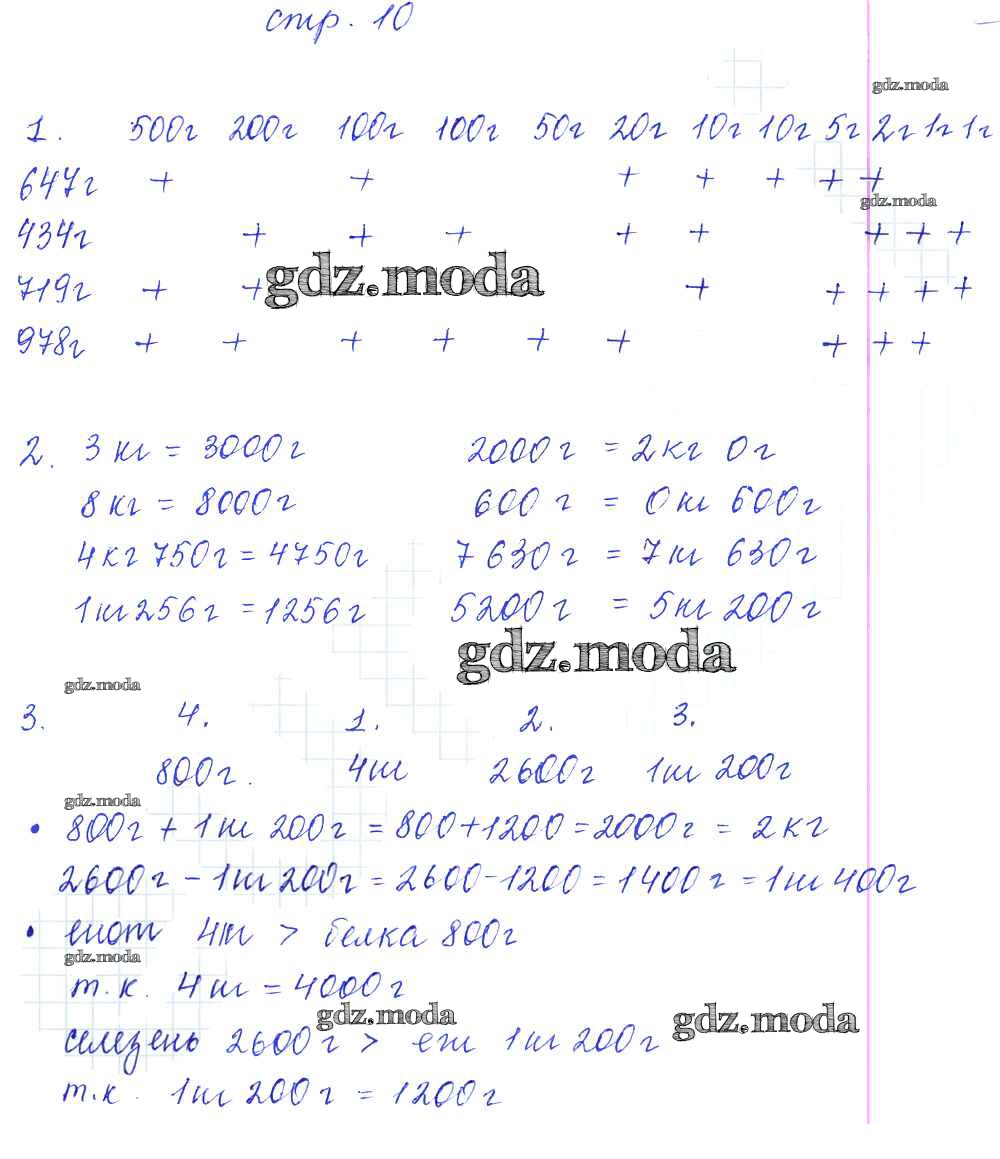 стр. 10
gdz.moda
1. 500г 200г 100г 100г 50г 20г 10г 10г 5г 2г 1г 1г
647г + + + + + + +
gdz.moda
434г + + + + + + + +
gdz.moda
719г + + + + + + +
978г + + + + + + + + +
2. 3 кг = 3000г 2000г = 2кг 0г
8 кг = 8000г 600 г = 0 кг 600г
4кг 750г = 4750г 7 630 г = 7 кг 630г
1кг 256г = 1256г 5200г = 5кг 200г
gdz.moda
gdz.moda
3. 4. 1. 2. 3.
800г. 4кг 2600г 1кг 200г
gdz.moda
• 800г + 1 кг 200г = 800+1200 = 2000г = 2кг
2600г – 1кг 200г = 2600-1200 = 1400г = 1кг 400г
• енот 4кг > белка 800г
gdz.moda
т.к. 4 кг = 4000г
gdz.moda gdz.moda
селезень 2600г > еж 1кг 200г
т.к. 1кг 200г = 1200г